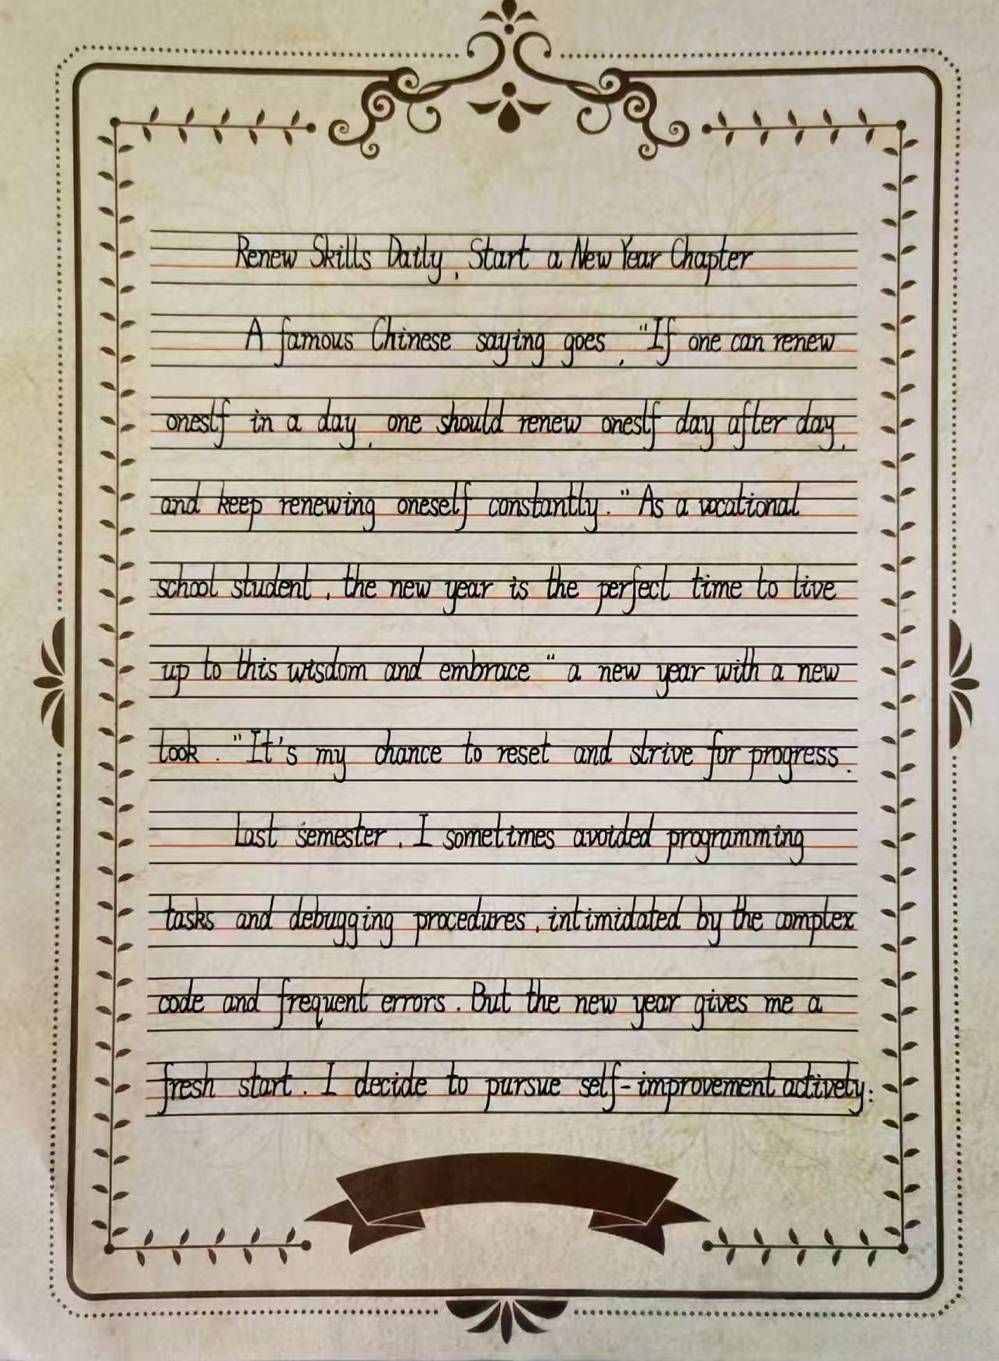 Renew Skills Daily, Start a New Year Chapter
A famous Chinese saying goes, "If one can renew
oneslf in a day, one should renew oneslf day after day,
and keep renewing oneself constantly." As a vocational
school student, the new year is the perfect time to live
up to this wisdom and embrace "a new year with a new
look." It's my chance to reset and strive for progress.
Last semester, I sometimes avoided programming
tasks and debugging procedures, intimidated by the complex
code and frequent errors. But the new year gives me a
fresh start. I decide to pursue self-improvement actively: